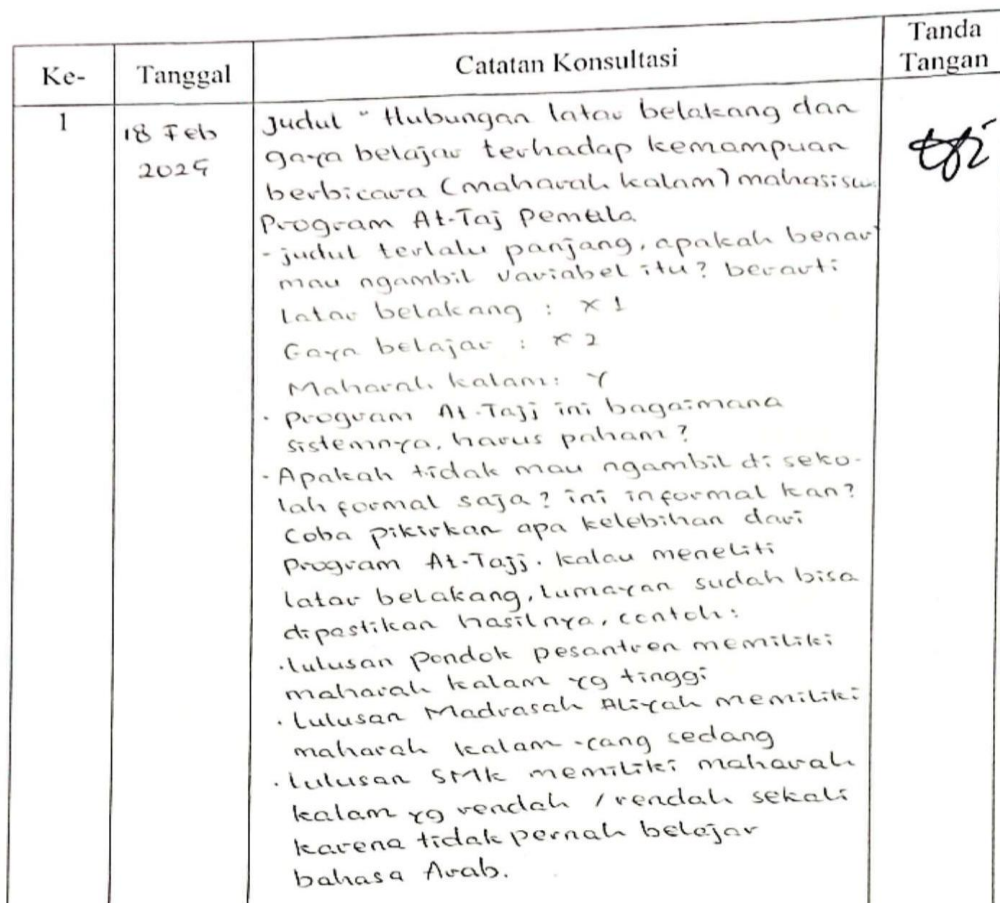 Ke- Tanggal Catatan Konsultasi Tanda Tangan
1
18 Feb
2025
Judul "Hubungan latar belakang dan
gaya belajar terhadap kemampuan
berbicara (maharah kalam) mahasiswa
Program At-Taj Pemula
- judul terlalu panjang, apakah benar
mau ngambil variabel itu? berarti
latar belakang : x 1
Gaya belajar : x 2
Maharah kalam: Y
· Program At-Tajj ini bagaimana
sistemnya, harus paham?
- Apakah tidak mau ngambil di seko-
lah formal saja? ini informal kan?
Coba pikirkan apa kelebihan dari
Program At-Tajj. kalau meneliti
latar belakang, lumayan sudah bisa
dipastikan hasilnya, contoh:
· lulusan Pondok pesantren memiliki
maharah kalam yg tinggi
· lulusan Madrasah Aliyah memiliki
maharah kalam yang sedang
· lulusan SMK memiliki maharah
kalam yg rendah / rendah sekali
karena tidak pernah belajar
bahasa Arab.